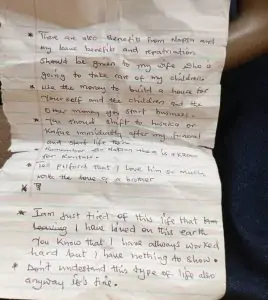 * There are also Benefits from Napsa and
my leave benefits and repatriation
should be given to my wife who is
going to take care of my children.
* Use the money to build a house for
yourself and the children and the
other money you start business.
* You should shift to Lusaka or
Kafue immediately after my funeral
and start life there
* Remember for Nathan there is
for Rentals.
* Tell pilford that I love him so much
with the love of a brother
* I am just tired of this life that
I have lived on this earth
You know that I have always worked
hard but I have nothing to show.
* Don't understand this type of life also
anyway its fine.